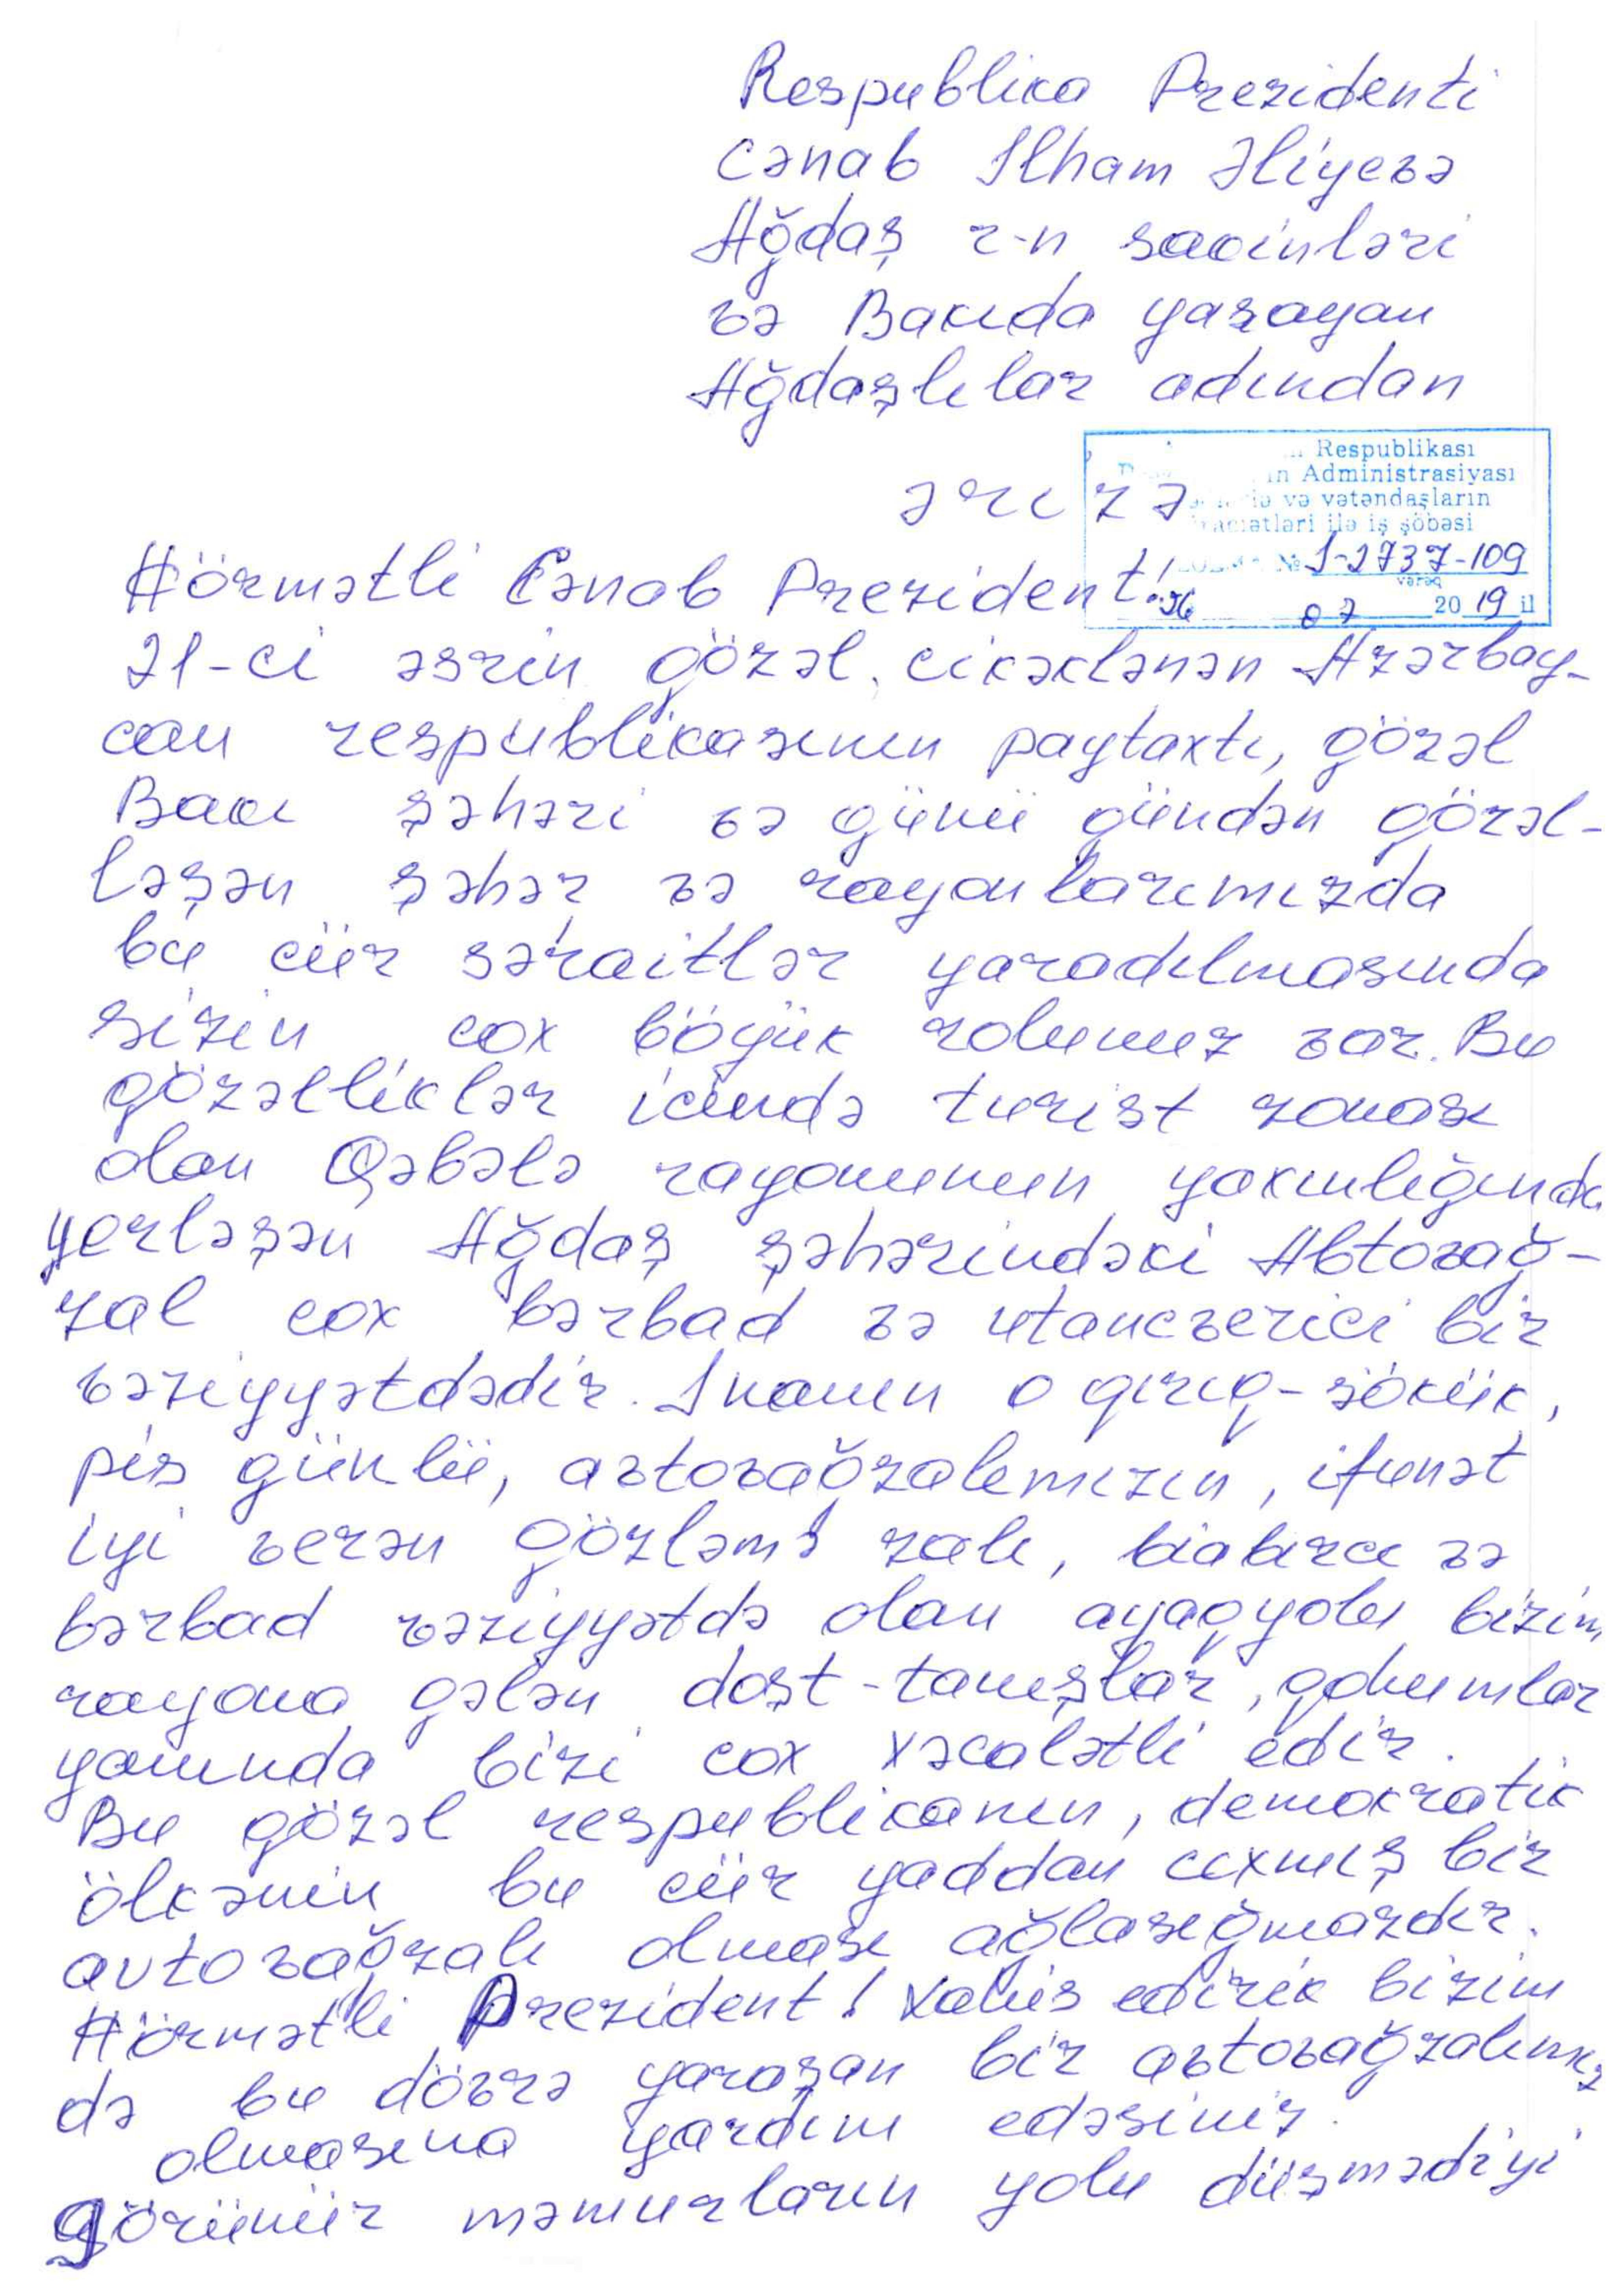 Respublika Prezidenti
Cənab İlham Əliyevə
Ağdaş r-n sakinləri
və Bakıda yaşayan
Ağdaşlılar adından
Respublikası
Administrasiyası
və vətəndaşların
ilə iş şöbəsi
№ 1-2737-109
vərəq
07 2019 il
ərizə
Hörmətli Cənab Prezident!
21-ci əsrin gözəl, cicəklənən Azərbay-
can respublikasının paytaxtı, gözəl
Bakı şəhəri və günü gündən gözəl-
ləşən şəhər və rayonlarımızda
bu cür səraitlər yaradılmasında
sizin cox böyük rolunuz var. Bu
gözəlliklər icində turist zonası
olan Qəbələ rayonunun yaxınlığında
yerləşən Ağdaş şəhərindəki Avtovağ-
zal cox bərbad və utancverici bir
vəziyyətdədir. İnanın o qırıq-sökük,
pis günlü, avtovağzalımızın, ifunət
iyi verən gözləmə zalı, biabırcı və
bərbad vəziyyətdə olan ayaqyolu bizim
rayona gələn dost-tanışlar, qohumlar
yanında bizi cox xəcalətli edir.
Bu gözəl respublikanın, demokratik
ölkənin bu cür yaddan cıxmış bir
avtovağzalı olması ağlasığmazdır.
Hörmətli Prezident! Xahis edirik bizim
də bu dövrə yaraşan bir avtovağzalımız
olmasına yardım edəsiniz.
Görünür məmurların yolu düşmədiyi